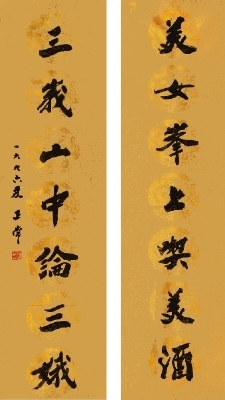 美女峯上喫美酒
三峩山中論三娥
一九九六夏 王常